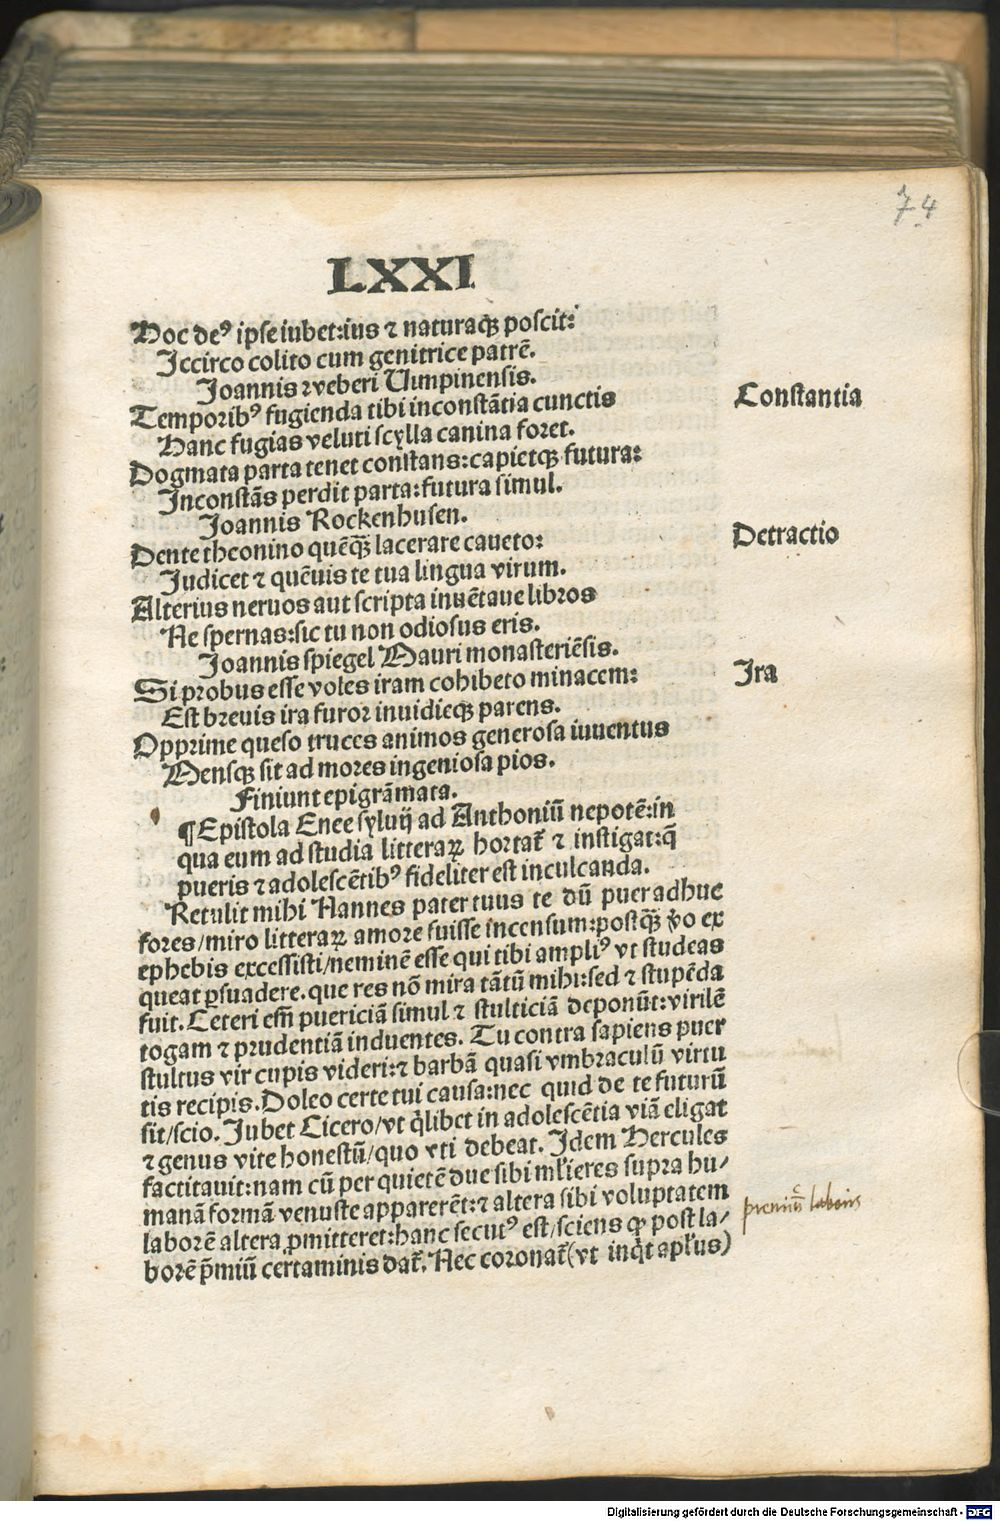 74
LXXI
Hoc deꝰ ipse iubet:ius ⁊ naturaqꝫ poscit:
Iccirco colito cum genitrice patrē.
Joannis ꝛveberi Vimpinensis.
Temporibꝰ fugienda tibi inconstātia cunctis
Constantia
Hanc fugias veluti scylla canina foret.
Dogmata parta tenet constans:capietqꝫ futura:
Inconstās perdit parta:futura simul.
Joannis Rockenhusen.
Dente theonino quēqꝫ̄ lacerare caueto:
Detractio
Judicet ⁊ quēuis te tua lingua virum.
Alterius neruos aut scripta inuētaue libros
Ne spernas:sic tu non odiosus eris.
Joannis spiegel Mauri monasteriēsis.
Si probus esse voles iram cohibeto minacem:
Ira
Est breuis ira furor inuidieqꝫ parens.
Opprime queso truces animos generosa iuuentus
Mensqꝫ sit ad mores ingeniosa pios.
Finiunt epigrāmata.
¶Epistola Enee syluij ad Anthoniū nepotē:in
qua eum ad studia litteraꝝ hortat̃ ⁊ instigat:q̄
pueris ⁊ adolescētibꝰ fideliter est inculcanda.
Retulit mihi Nannes pater tuus te dū puer adhuc
fores/miro litteraꝝ amore fuisse incensum:postqꝫ̄ v̄o ex
ephebis excessisti/neminē esse qui tibi ampliꝰ vt studeas
queat ꝑsuadere.que res nō mira tātū mihi:sed ⁊ stupēda
fuit.Ceteri em̄ puericiā simul ⁊ stulticiā deponūt:virilē
togam ⁊ prudentiā induentes. Tu contra sapiens puer
stultus vir cupis videri:⁊ barbā quasi vmbraculū virtu
tis recipis.Doleo certe tui causa:nec quid de te futurū
sit/scio. Jubet Cicero/vt q̇libet in adolescētia viā eligat
⁊ genus vite honestū/quo vti debeat. Idem Hercules
factitauit:nam cū per quietē due sibi ml̓ieres supra hu/
manā formā venuste apparerēt:⁊ altera sibi voluptatem
laborē altera ꝓmitteret:hanc secutꝰ est/sciens ꝙ post la/
premiū laboris
borē p̄miū certaminis dat̃. Nec coronat̃(vt inq̇t apl̓us)
Digitalisierung gefördert durch die Deutsche Forschungsgemeinschaft - DFG